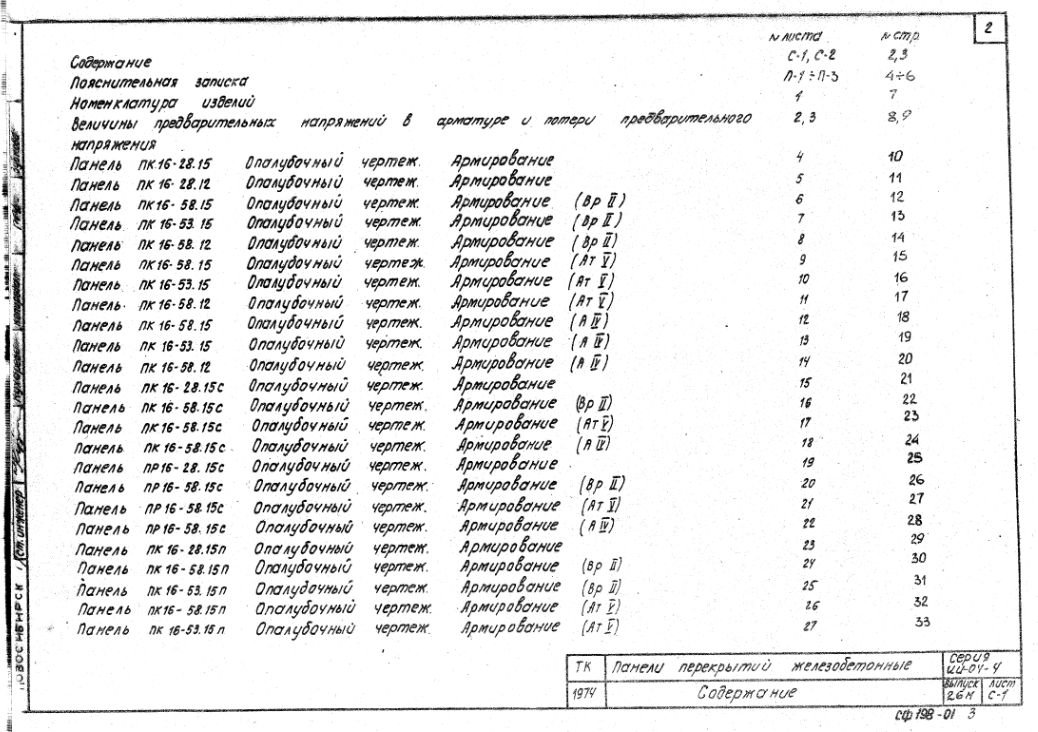 2
N листа N стр.
Содержание С-1, С-2 2,3
Пояснительная записка П-1÷П-3 4÷6
Номенклатура изделий 1 7
Величины предварительных напряжений в арматуре и потери предварительного 2,3 8,9
напряжения
Панель ПК16-28.15 Опалубочный чертеж. Армирование 4 10
Панель ПК 16-28.12 Опалубочный чертеж. Армирование 5 11
Панель ПК16-58.15 Опалубочный чертеж. Армирование (Вр II) 6 12
Панель ПК 16-53.15 Опалубочный чертеж. Армирование (Вр II) 7 13
Панель ПК 16-58.12 Опалубочный чертеж. Армирование (Вр II) 8 14
Панель ПК16-58.15 Опалубочный чертеж. Армирование (Ат V) 9 15
Панель ПК 16-53.15 Опалубочный чертеж. Армирование (Ат V) 10 16
Панель ПК 16-58.12 Опалубочный чертеж. Армирование (Ат V) 11 17
Панель ПК 16-58.15 Опалубочный чертеж. Армирование (А IV) 12 18
Панель ПК 16-53.15 Опалубочный чертеж. Армирование (А IV) 13 19
Панель ПК 16-58.12 Опалубочный чертеж. Армирование (А IV) 14 20
Панель ПК 16-28.15с Опалубочный чертеж. Армирование 15 21
Панель ПК 16-58.15с Опалубочный чертеж. Армирование (Вр II) 16 22
Панель ПК 16-58.15с Опалубочный чертеж. Армирование (Ат V) 17 23
Панель ПК 16-58.15с Опалубочный чертеж. Армирование (А IV) 18 24
Панель ПР16-28.15с Опалубочный чертеж. Армирование 19 25
Панель ПР16-58.15с Опалубочный чертеж. Армирование (Вр II) 20 26
Панель ПР16-58.15с Опалубочный чертеж. Армирование (Ат V) 21 27
Панель ПР16-58.15с Опалубочный чертеж. Армирование (А IV) 22 28
Панель ПК 16-28.15п Опалубочный чертеж. Армирование 23 29
Панель ПК 16-58.15п Опалубочный чертеж. Армирование (Вр II) 24 30
Панель ПК 16-53.15п Опалубочный чертеж. Армирование (Вр II) 25 31
Панель ПК16-58.15п Опалубочный чертеж. Армирование (Ат V) 26 32
Панель ПК 16-53.15п Опалубочный чертеж. Армирование (Ат V) 27 33
ТК Панели перекрытий железобетонные серия
ИИ-04-4
1974 Содержание выпуск лист
26м С-1
СФ 198-01 3
Ст. инженер